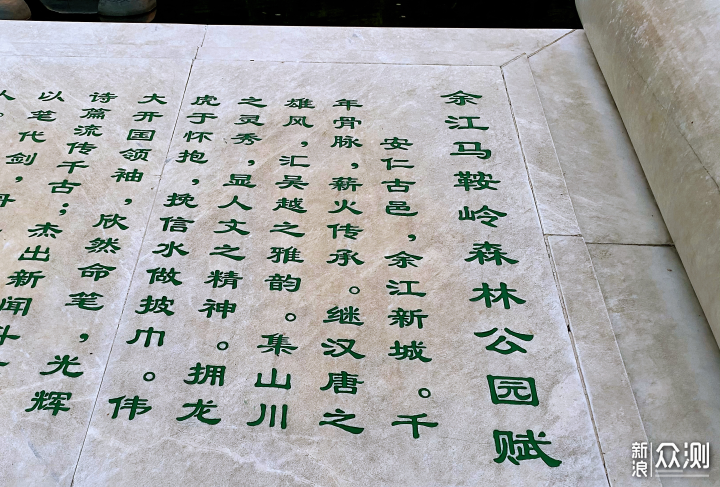 余江马鞍岭森林公园赋
安仁古邑，余江新城。千
年骨脉，薪火传承。继汉唐之
雄风，汇吴越之雅韵。集山川
之灵秀，显人文之精神。拥龙
虎于怀抱，挽信水做披巾。伟
大开国领袖，欣然命笔，光辉
诗篇流传千古；杰出新闻斗
以笔代剑，
人。
新浪众测